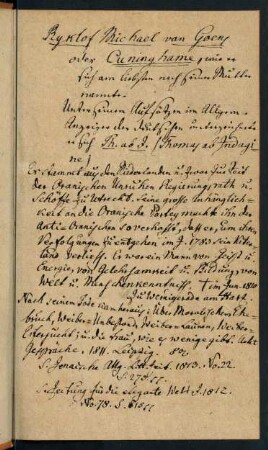 Ryklof Michael van Goens
oder Cuninghame, wie er
sich am liebsten nach seiner Mutter
nannte.
Unter seinen Aufsätzen im Allgem.
Anzeiger der Deutschen unterzeichnete
er sich Th. ab I. (Thomas ab Indagine)
Er stammt aus den Niederlanden u. zwar zur Zeit
der Oranischen Unruhen Regierungsrath u.
Schöffe zu Utrecht. Seine grosse Anhänglich-
keit an die Oranische Partey machte ihn den
Anti-Oranischen so verhasst, dass er, um ihren
Verfolgungen zu entgehen im J. 1783 sein Vater-
land verliess. Er war ein Mann von Geist u.
Energie, von Gelehrsamkeit u. Bildung, von
Welt u. Menschenkenntniss. † im Jun. 1810
zu Wernigerode am Harz.
Nach seinem Tode kam heraus: Über Moralischen Ehe-
bruch, Weiber-Unbestand, Weiberlaunen, Weiber-
Eifersucht u. die Frau, wie es wenige gibt. Acht
Gespräche. 1811. Leipzig. 8°.
S. Jenaische Allg. Lit. Zeit. 1813. No. 22.
S. 175 ff
S. Zeitung für die elegante Welt J. 1812.
No. 78. S. 617 ff